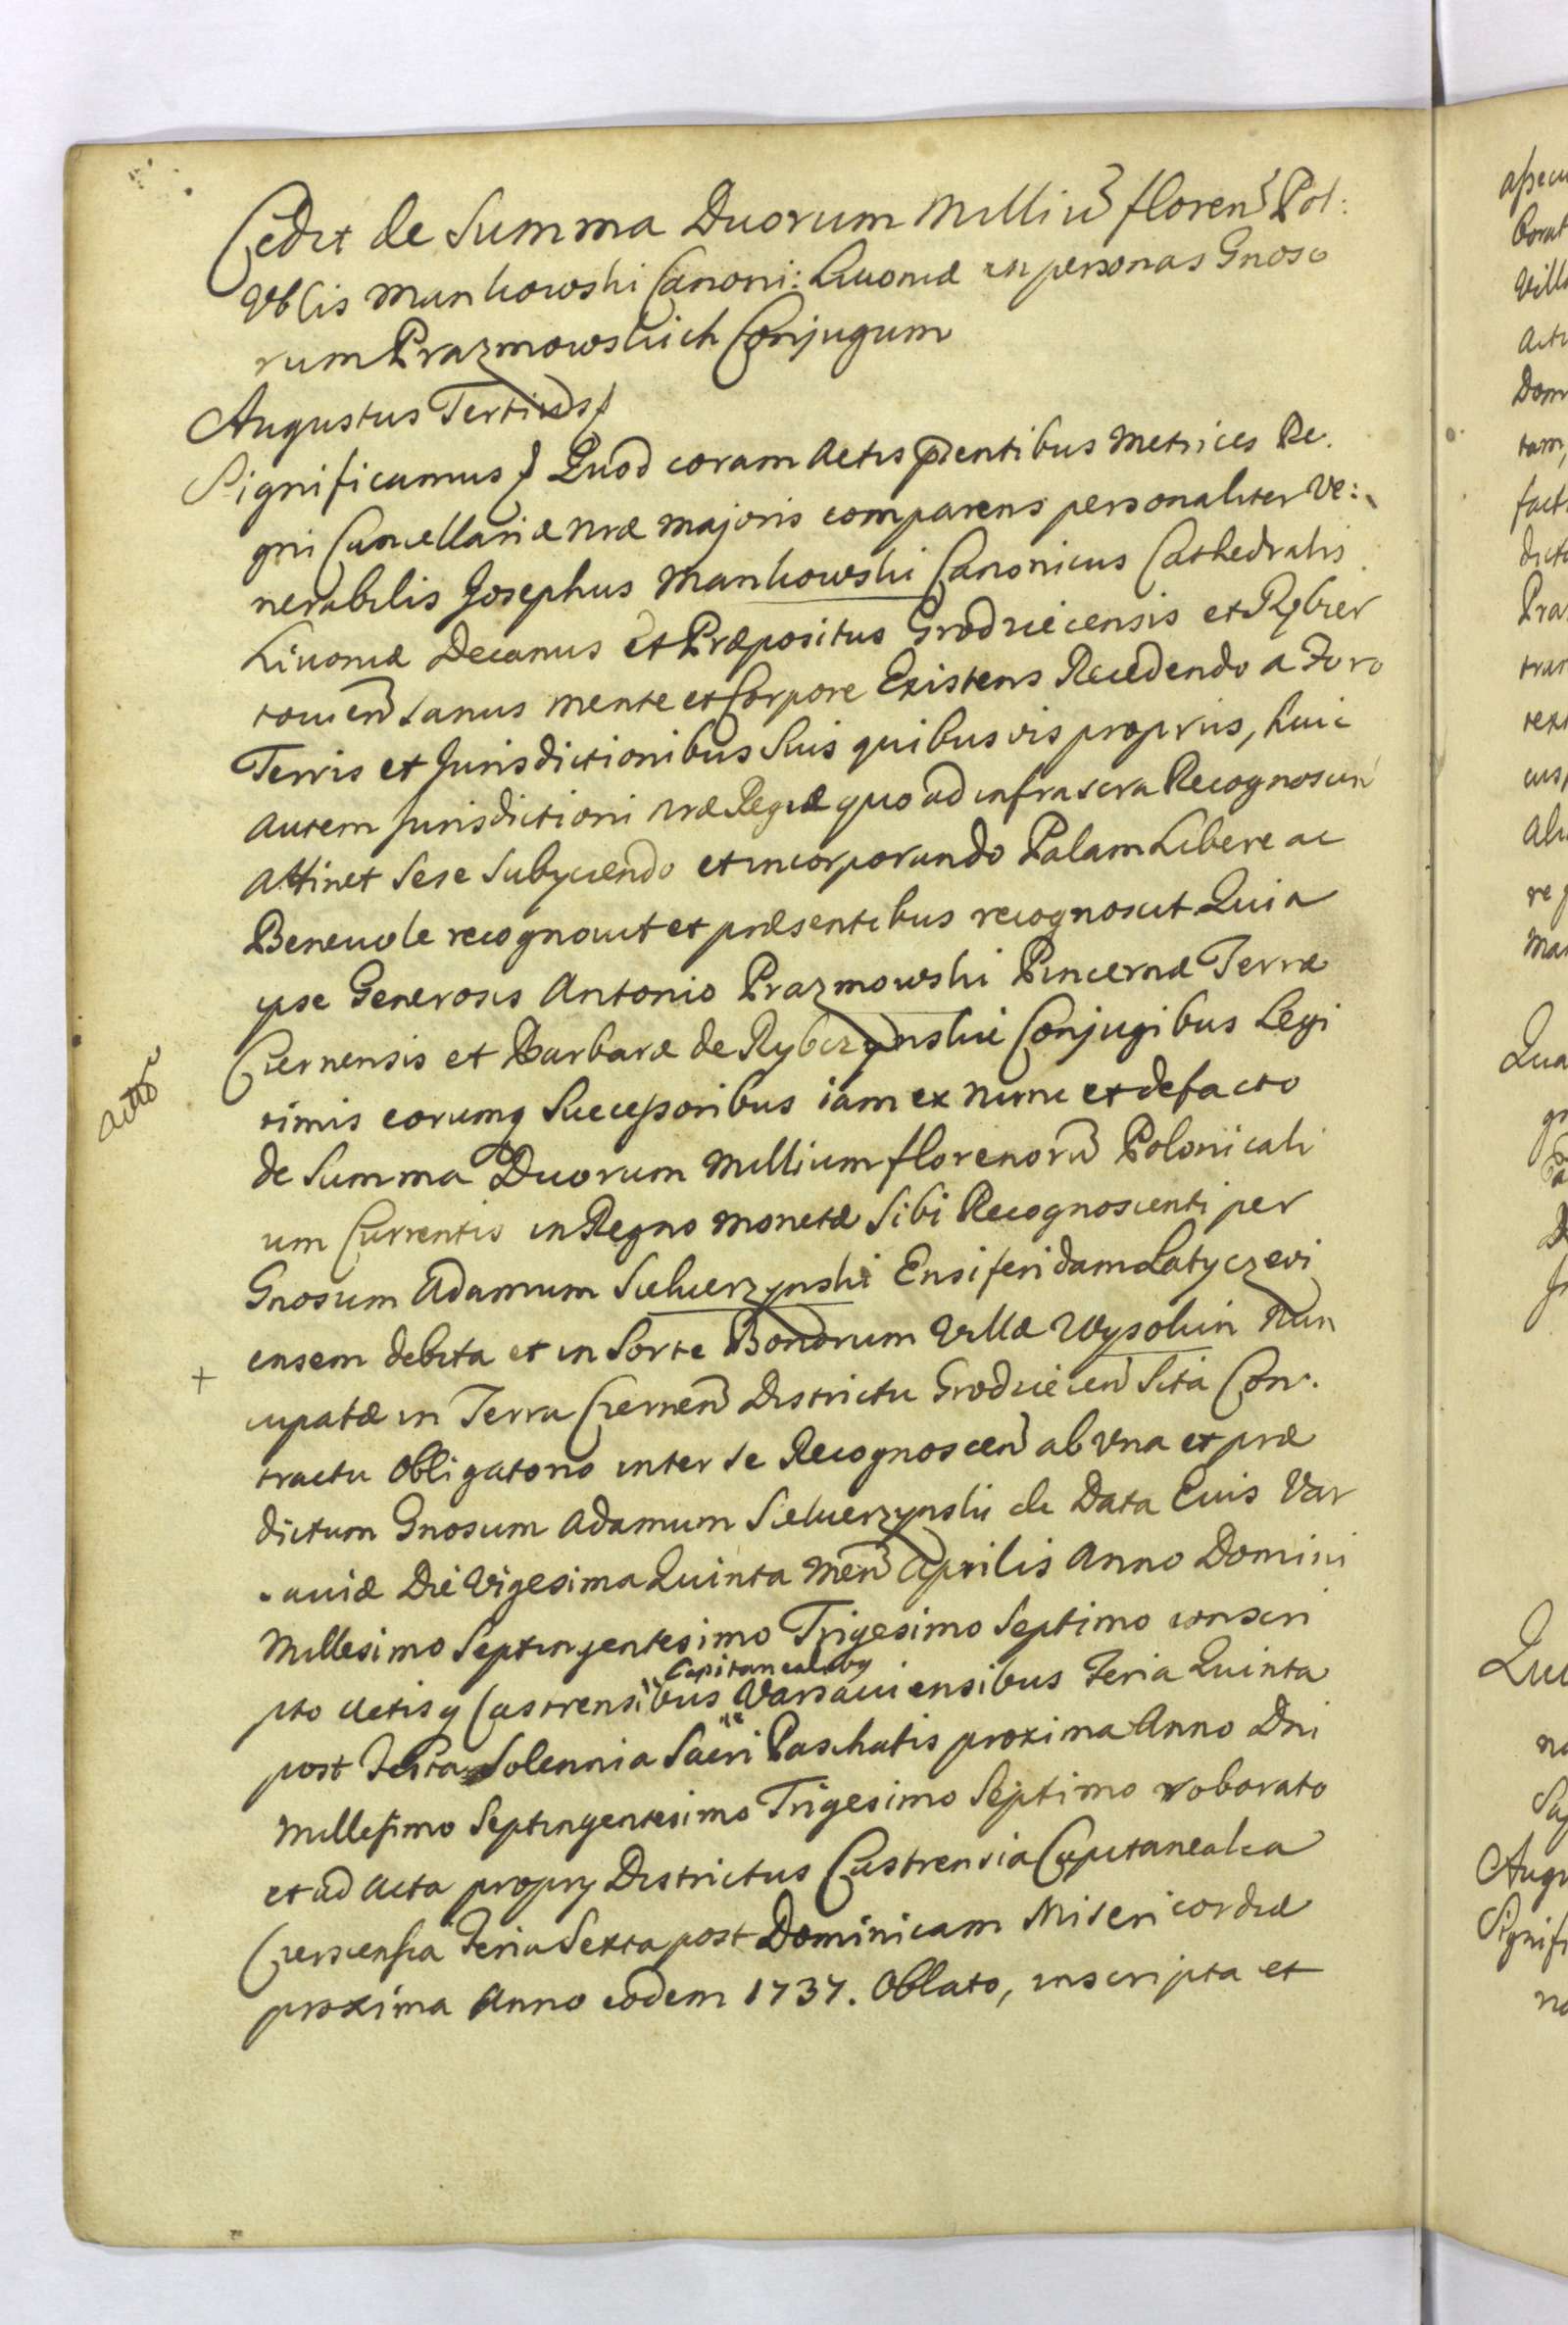 Cedit de Summa Duorum Milliũ florenũ Pol:
Vblis Mankowski Canoni: Livoniæ in personas Gnoso
rum Prazmowskich Conjugum
Augustus Tertius
Significamus Quod coram Actis pñentibus Metrices Re.
gni Cancellariæ nræ Majoris comparens personaliter Ve:
nerabilis Josephus Mankowski Canonicus Cathedralis
Livoniæ Decanus et Præpositus Grodziecensis et Rybier
sanus mente et Corpore Existens Recedendo a Foro
Terris et Jurisdictionibus Suis quibusvis proprijs, huic
autem Jurisdictioni nræ Regiæ quo ad infrascra Recognoscen
attinet Sese Subijciendo et incorporando Palam Libere ac
Beneuole recognouit et præsentibus recognoscit Quia
ipse Generosis Antonio Prazmowski Pincernæ Terræ
Czernensis et Barbaræ de Rybczynskie Conjugibus Legi
timis eorumq Successoribus iam ex nunc et defacto
de Summa Duorum Millium florenorũ Polonicali
um Currentis in Regno Monetæ Sibi Recognoscenti per
Gnosum Adamum Siekierzynski Ensiferidam Latyczevi
ensem debita et in Sorte Bonorum Villæ Wysokin Nun
cupatæ in Terra Czernen Districtu Grodziecen Sita Con.
tractu Obligatorio inter se Recognoscen ab vna et præ
dictum Gnosum Adamum Siekierzynski de Data Eius Var
sauiæ Die Vigesima Quinta Men Aprilis Anno Domini
Millesimo Septingentesimo Trigesimo Septimo conscri
Capitanealibq
pto Actisq Castrensibus Varsauiensibus Feria Quinta
post Festa Solennia Sacri Paschatis proxima Anno Dni
Millesimo Septingentesimo Trigesimo Septimo roborato
et ad Acta proprij Districtus Castrensia Capitanealia
Czerscensia Feria Sexta post Dominicam Misericordiæ
proxima Anno eodem 1737. Oblato, inscripta et
+